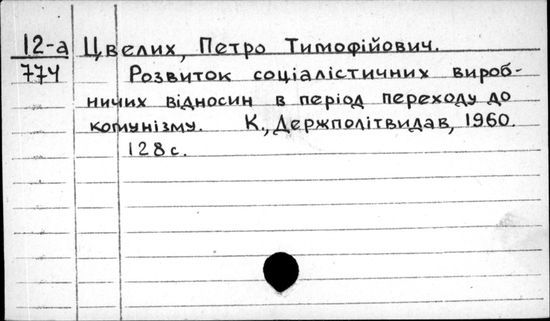 12-а Цвелих, Петро Тимофійович.
774 Розвиток соціалістичних вироб-
ничих відносин в період переходу до
комунізму. К., Держполітвидав, 1960.
128 с.